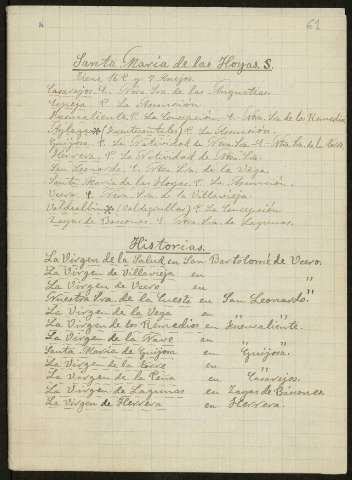 61
Santa María de las Hoyas. S.
Tiene 16 P. y 7 Anejos.
Casarejos. E. Ntra. Sra. de las Angustias.
Espeja. P. La Asunción.
Fuencaliente. P. La Concepción. E. Ntra. Sra. de los Remedios
(Fuentearmegil) P. La Asunción.
Guijosa. P. La Natividad de Ntra. Sra. E. Ntra. Sra. de la
Herrera. P. La Natividad de Ntra. Sra.
San Leonardo. E. Ntra. Sra. de la Vega.
Santa María de las Hoyas. P. La Asunción.
Ucero. E. Ntra. Sra. de la Villavieja.
Valdealbin * (Valdegrulla) P. La Concepción.
Zayas de Báscones. E. Ntra. Sra. de Lagunas.
Historias.
La Virgen de la Salud en San Bartolomé de Ucero.
La Virgen de Villavieja en "
La Virgen de Ucero en "
Nuestra Sra. de la Cuesta en San Leonardo.
La Virgen de la Vega en " "
La Virgen de los Remedios en Fuencaliente.
La Virgen de la Nave en " "
Santa María de Guijosa en Guijosa.
La Virgen de la en "
La Virgen de la Peña en Casarejos.
La Virgen de Lagunas en Zayas de Báscones
La Virgen de Herrera en Herrera.